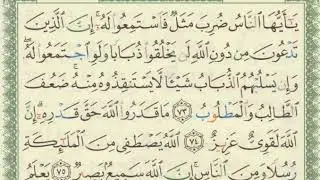 يَـٰٓأَيُّهَا ٱلنَّاسُ ضُرِبَ مَثَلٌ فَٱسْتَمِعُوا۟ لَهُۥٓ إِنَّ ٱلَّذِينَ
تَدْعُونَ مِن دُونِ ٱللَّهِ لَن يَخْلُقُوا۟ ذُبَابًا وَلَوِ ٱجْتَمَعُوا۟ لَهُۥ
وَإِن يَسْلُبْهُمُ ٱلذُّبَابُ شَيْـًٔا لَّا يَسْتَنقِذُوهُ مِنْهُ ضَعُفَ
ٱلطَّالِبُ وَٱلْمَطْلُوبُ ٧٣ مَا قَدَرُوا۟ ٱللَّهَ حَقَّ قَدْرِهِۦٓ إِنَّ
ٱللَّهَ لَقَوِىٌّ عَزِيزٌ ٧٤ ٱللَّهُ يَصْطَفِى مِنَ ٱلْمَلَـٰٓئِكَةِ
رُسُلًا وَمِنَ ٱلنَّاسِ إِنَّ ٱللَّهَ سَمِيعٌۢ بَصِيرٌ ٧٥ يَعْلَمُ